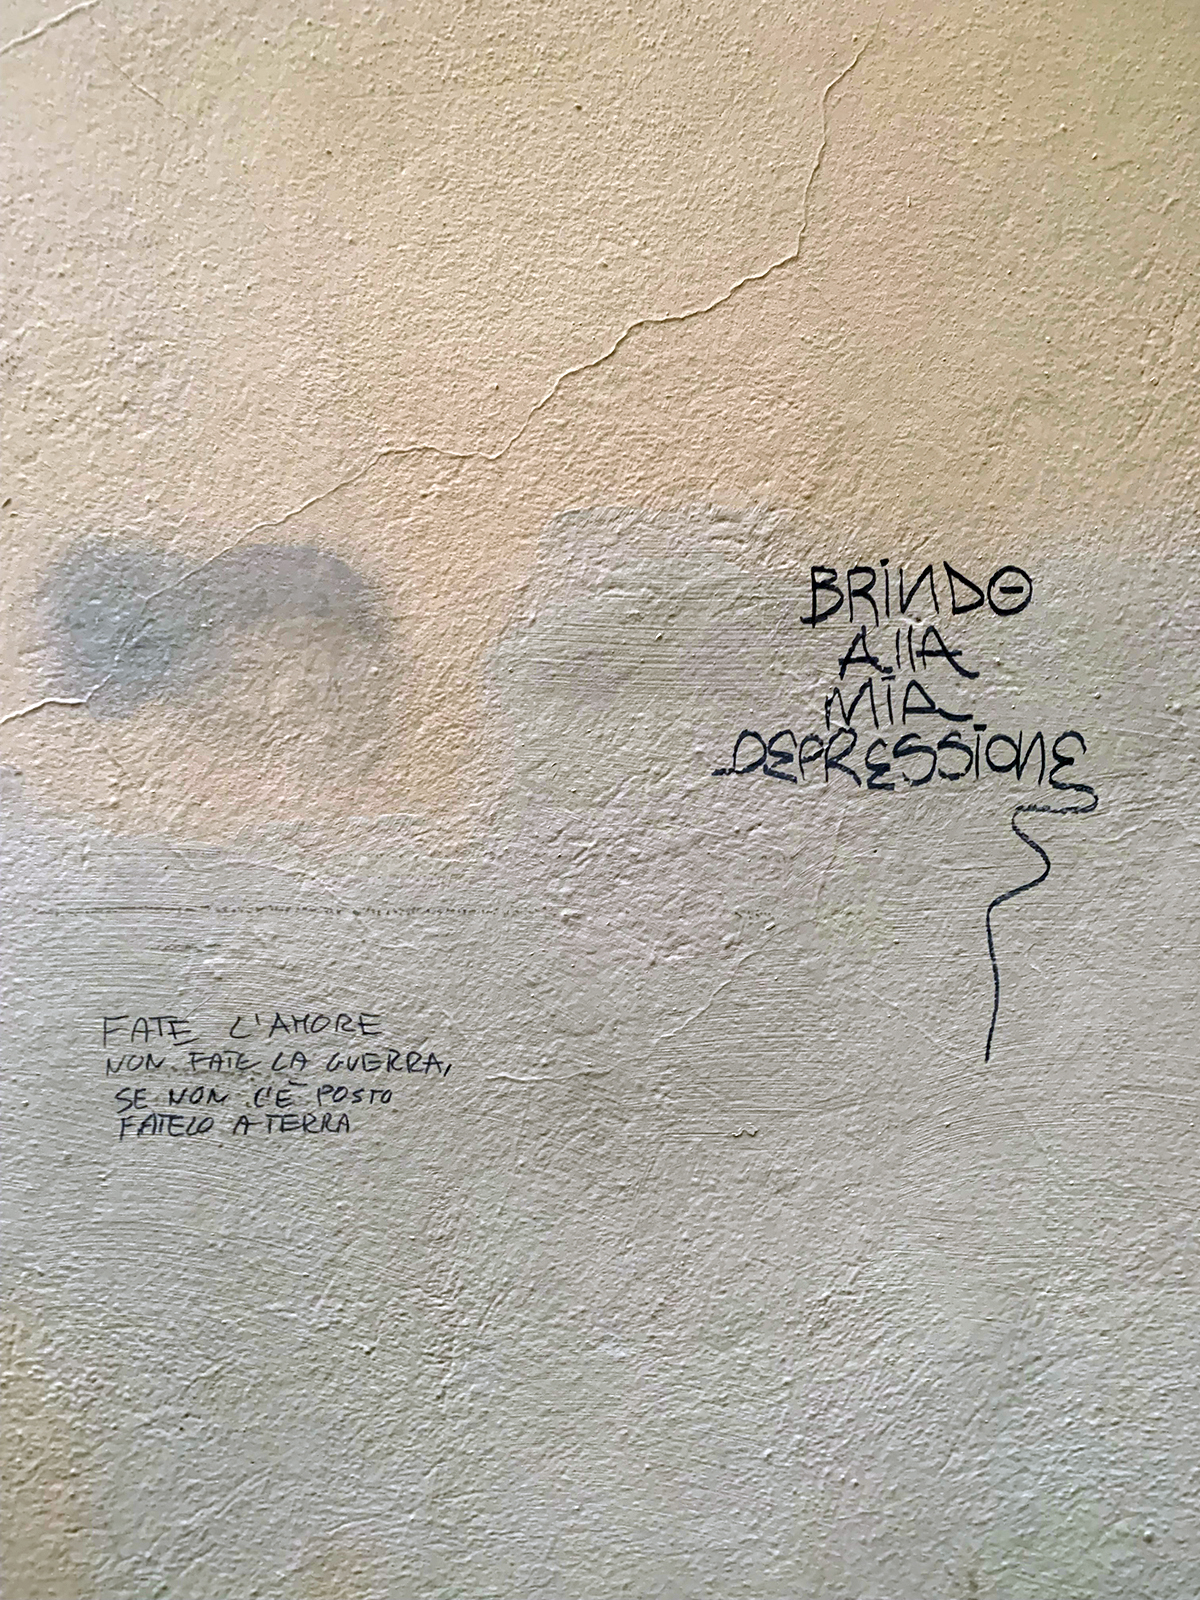 BRINDO
ALLA
MIA
DEPRESSIONE
FATE L'AMORE
NON FATE LA GUERRA,
SE NON C'È POSTO
FATELO A TERRA